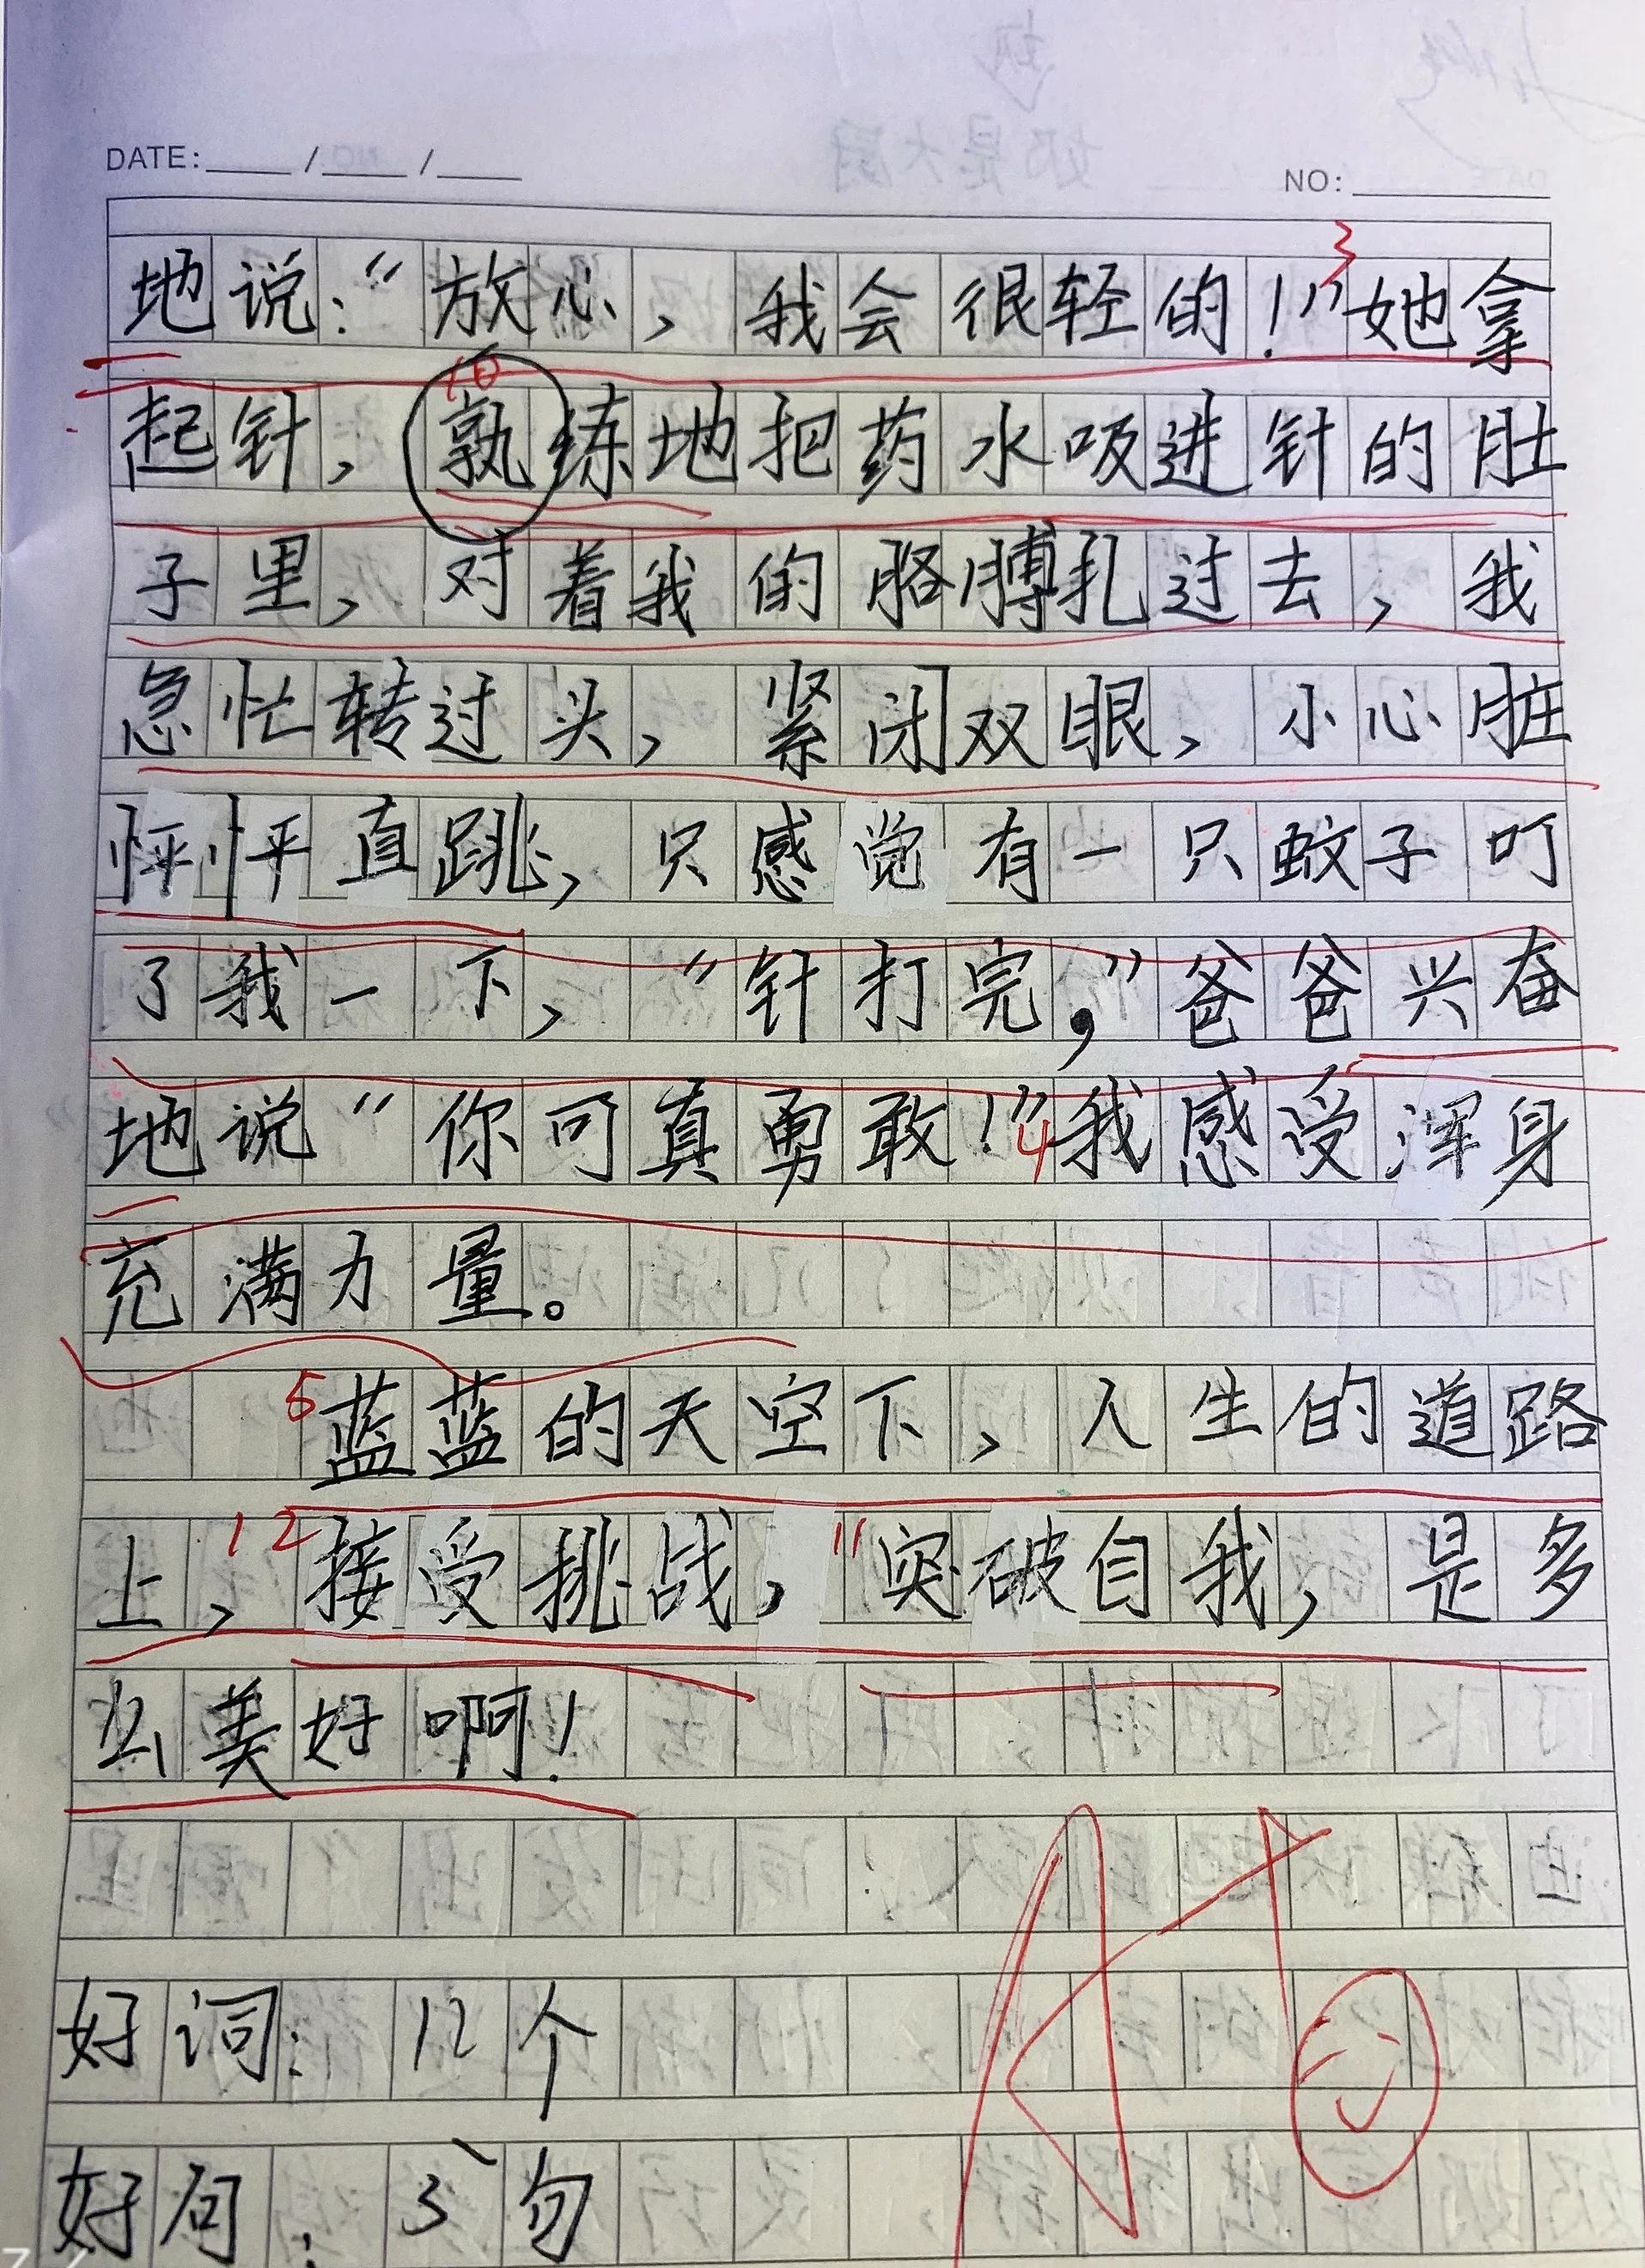 DATE: / /
NO:
地说：“放心，我会很轻的！”3她拿
起针，10孰练地把药水吸进针的肚
子里，对着我的胳膊扎过去，我
急忙转过头，紧闭双眼，小心脏
怦怦直跳，只感觉有一只蚊子叮
了我一下，“针打完，”爸爸兴奋
地说“你可真勇敢！”4我感受浑身
充满力量。
5蓝蓝的天空下，人生的道路
上，12接受挑战，11突破自我，是多
么美好啊！
A+
好词：12个
好句：5句